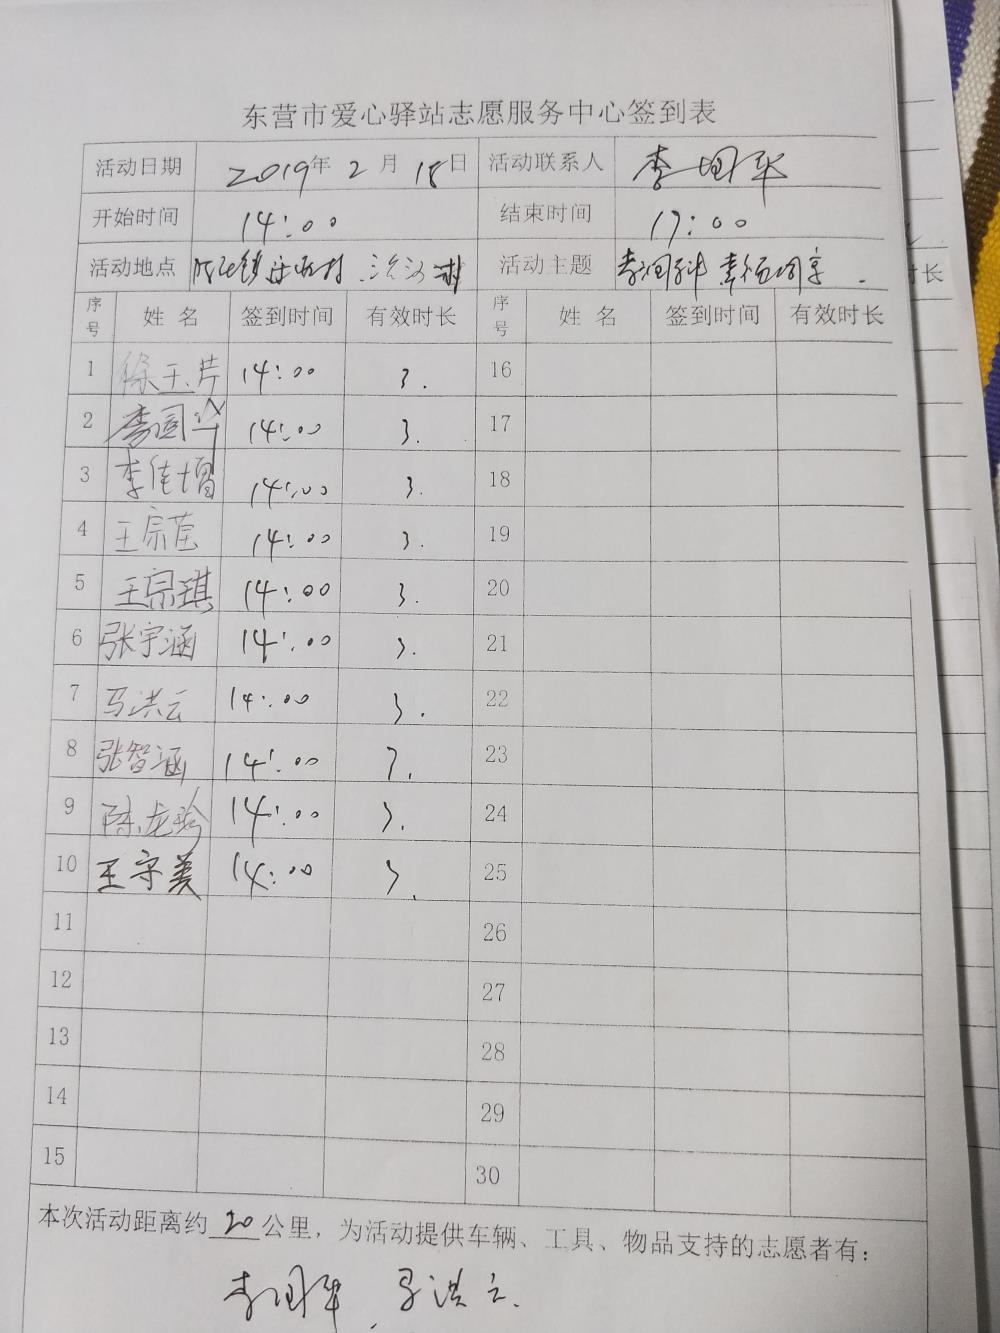 东营市爱心驿站志愿服务中心签到表
活动日期 2019年 2月 18日 活动联系人 李国华
开始时间 14:00 结束时间 17:00
活动地点 活动主题
序号 姓名 签到时间 有效时长 序号 姓名 签到时间 有效时长
1 徐玉芹 14:00 3. 16
2 李国华 14:00 3. 17
3 李佳增 14:00 3. 18
4 王宗莹 14:00 3. 19
5 王宗琪 14:00 3. 20
6 张宇涵 14:00 3. 21
7 马洪云 14:00 3. 22
8 张智涵 14:00 3. 23
9 陈龙珍 14:00 3. 24
10 王守美 14:00 3. 25
11 26
12 27
13 28
14 29
15 30
本次活动距离约 20 公里，为活动提供车辆、工具、物品支持的志愿者有：
李国华 马洪云.
时长